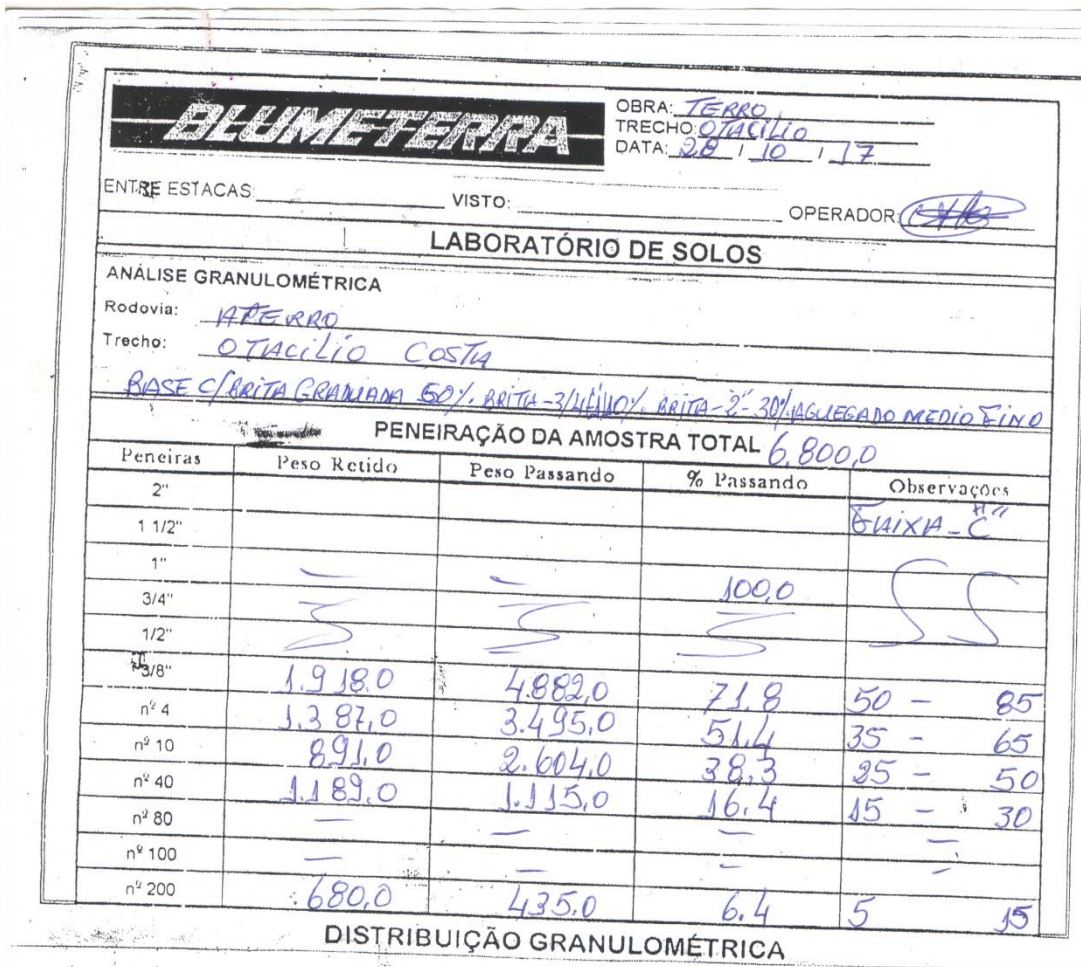 BLUMETERRA
OBRA: TERRO
TRECHO: OTACILIO
DATA: 28 / 10 / 17
ENTRE ESTACAS: VISTO: OPERADOR:
LABORATÓRIO DE SOLOS
ANÁLISE GRANULOMÉTRICA
Rodovia: ATERRO
Trecho: OTACILIO COSTA
BASE C/BRITA GRADUADA 60%. BRITA-3/4 10%. BRITA-2"-30%.AGUEGADO MEDIO FINO
PENEIRAÇÃO DA AMOSTRA TOTAL 6.800,0
Peneiras Peso Retido Peso Passando % Passando Observações
2"
1 1/2" FAIXA-"C"
1" — — 100,0
3/4"
1/2"
3/8" 1.918.0 4.882,0 71.8 50 — 85
nº 4 1.387,0 3.495,0 51.4 35 - 65
nº 10 891,0 2.604,0 38,3 25 - 50
nº 40 1.189,0 1.115,0 16.4 15 - 30
nº 80 — — — —
nº 100 — — — —
nº 200 680,0 435.0 6.4 5 15
DISTRIBUIÇÃO GRANULOMÉTRICA